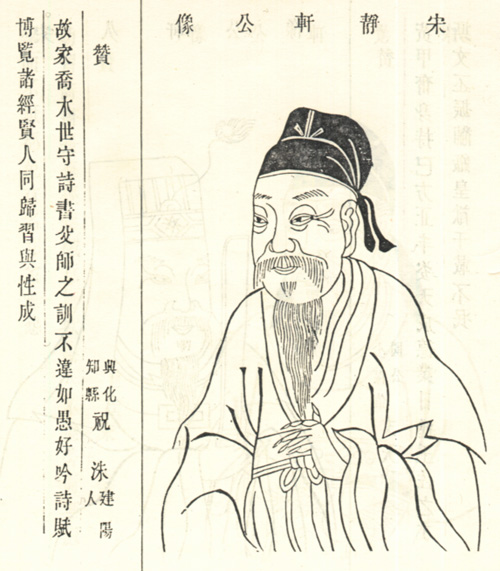 宋靜軒公像
贊
興化知縣祝洙建陽人
故家喬木世守詩書父師之訓不違如愚好吟詩賦
博覧諸經賢人同歸習與性成